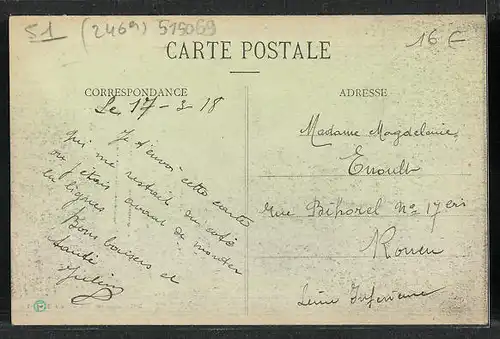 51 (2469) 515069
16 F
CARTE POSTALE
CORRESPONDANCE
ADRESSE
Le 17-3 18
Je t'envoi cette carte
qui me restait du coté
ou j'étais avant de monter
en lignes
Bons baisers et
santé
Madame Magdeleine
Enoult
rue Bihorel No 17 bis
Rouen
Seine Inferieure